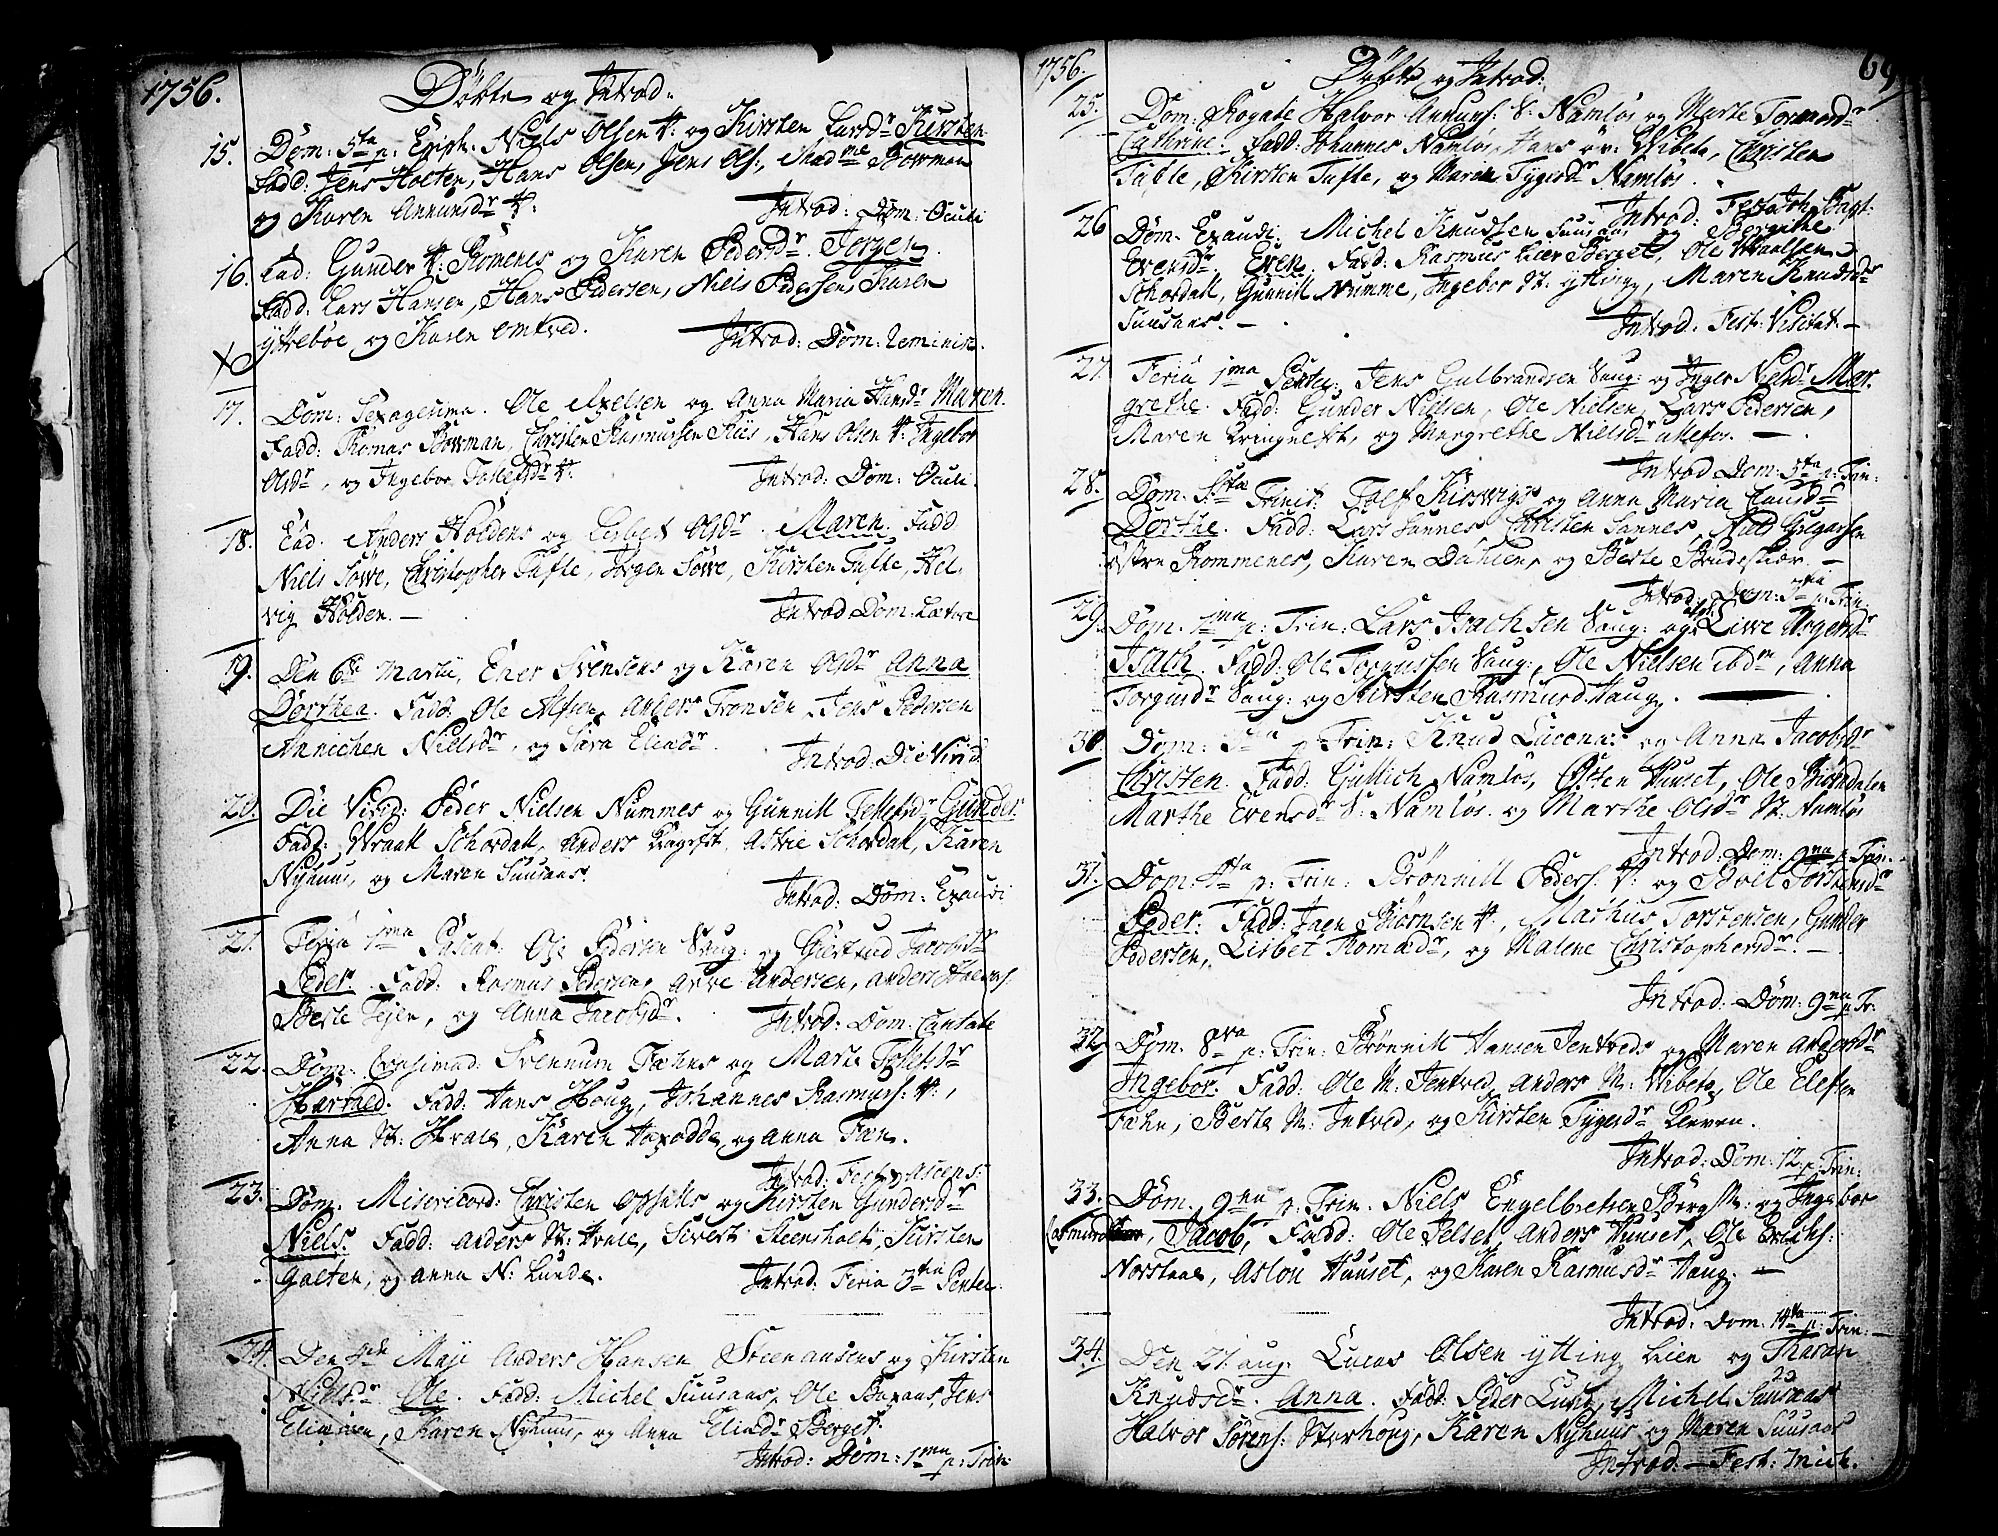 1756.
Döbte og Introd:
15. Dom: 5ta p: Epiph. Niels Olsen V: og Kirsten Larsdr Kirsten
Fadd: Jens Holten, Hans Olsen, Jens Ols:, Madme Bowman
og Karen Annunsdr V:
Introd: Dom: Oculi
16. Ead: Gunder V: Romenes og Karen Pedersdr. Jørgen.
Fadd: Lars Hansen, Hans Pedersen, Niels Pedersen, Karen
yttrebøe og Karen Omtved.
Introd: Dom: Reminisc.
17. Dom: Sexagesima. Ole Axelsen og Anna Maria Hansdr Maren.
Fadd: Thomas Bowman, Christen Rasmussen Kiis, Hans Olsen V: Ingebor
Olsdr, og Ingebor Tollefsdr V.
Introd: Dom: Oculi.
18. Ead. Anders Holdens og Lisbet Olsdr. Maren. Fadd
Niels Sowe, Christopher Tufte, Jørgen Sowe, Kirsten Tufte, Hel-
vig Holden. —
Introd Dom: Lætare
19. Den 6te Martii, Ener Svensens og Karen Olsdr Anna
Dorthea. Fadd: Ole Alfsen, Anders Tronsen, Jens Pedersen
Annichen Nielsdr, og Sara Eliædr.
Introd: Die Virid
20. Die Virid: Peder Nielsen Nummes og Gunnill Tellefsdr Gunder.
Fadd: Wraall Schordall, Anders Bagrst, Astrie Schordall, Karen
Nyhuus, og Maren Suusaas.
Introd: Dom: Exaudi
21. Feria 1ma Pascat: Ole Pedersen Haug: og Giertrud Jacobsdr
Peder. Fadd: Rasmus Pedersen, Arve Andersen, Anders
Berte Tejen, og Anna Jacobsdr.
Introd: Dom: Cantate
22. Dom: Qvasimod: Svennum Fæhns og Marte Tollefsdr
Fadd: Hans Houg, Johannes Rasmus: V:,
Anna N: Hvale, Karen og Anna Fæn.
Introd: Fest: Ascens:
23. Dom. Misericord: Christen Opsahls og Kirsten Gundersdr
Niels. Fadd: Anders N: Hvale, Sivert Steensholt, Kirsten
Galten, og Anna N: Lunde.
Introd: Feria 3tia Pentec.
24. Den 4de Maji Anders Hansen Steenansens og Kirsten
Nielsdr Ole. Fadd: Michel Suusaas, Ole Jens
Eliæsen, Karen Nyhuus, og Anna Eliædr Berget.
Introd: Dom: 1ma p: Trin:
1756.
Döbte og Introd:
69
25. Dom: Rogate Halvor Annuns: S: Namløs og Marte Tormodsdr
Cathrine. Fadd: Johannes Namløs, Hans öv: Vibeto, Christen
Tufte, Kirsten Tufte, og Maren Tygersdr Namløs.
Introd: Festo Joh: Bapt:
26. Dom. Exaudi. Michel Knudsen Suusaas og Berenthe
Evensdr. Even. Fadd: Rasmus Leier Berget, Ole Wraalsen
Schordall, Gunnill Numme, Ingebor N. ytting, Maren Knudsdr
Suusaas. —
Introd: Fest: Visitat: —
27. Feria 1ma Pentec: Jens Gulbrandsen Haug: og Inger Nielsdr Mar-
grethe. Fadd: Gunder Nielsen, Ole Nielsen, Lars Pedersen,
Maren og Margrethe Nielsdr Ulefos. —
Introd Dom: 5ta p: Trin:
28. Dom. Fsta Trinit: Tolf Kisvigs og Anna Maria Clausdr
Dorthe. Fadd: Lars Sannes, Christen Sannes, Niels Helgersen
østre Rommenes, Karen Dahlen, og Berte Brudeskiør. —
Introd: Dom: 7ma p: Trin.
29. Dom. 1ma p: Trin: Lars Isachsen Haug: og Live Asgersdr
Isach. Fadd: Ole Torgussen Haug:, Ole Nielsen ibdm, Anna
Torgusdr Haug: og Kirsten Rasmusd. Haug. —
30. Dom: 3tia p: Trin: Knud Lucena: og Anna Jacobsdr
Christen. Fadd: Gullich Namløs, Osten Huuset, Ole Biørndalen
Marthe Evensdr S: Namløs. og Marthe Olsdr N: Namløs
Introd: Dom: 9na p: Trin:
31. Dom: 4ta p: Trin: Brønnill Peders: V: og Boel Torstensdr
Peder. Fadd: Jaen Biørnsen V:, Mathis Torstensen, Gunder
Pedersen, Lisbet Thomædr, og Malene Christophersdr. —
Introd: Dom: 9na p: Tr.
32. Dom. 8va p: Trin: Brønnill Hansen Jentveds og Maren Andersdr
Ingebor. Fadd: Ole M. Jentved, Anders M: Vibeto, Ole Elefsen
Fæhn, Berte M: Intved, og Kirsten Tygersdr Kleven.
Introd: Dom: 12. p: Trin:
33. Dom. 9na p: Trin. Niels Engelbretsen Berg M: og Ingebor
Jacob, Fadd: Ole Jelset, Anders Huuset, Ole Erichs:
Norstaae, Aslou Huuset, og Karen Rasmusdr Haug. —
Introd: Dom. 14ta p: Trin: —
34. Den 27. aug. Lucas Olsen ytting Leien og Tharan
Knudsdr. Anna. Fadd: Peder Lund, Michel Suusaas
Halvor Sørens: Storhoug, Karen Nyhuus og Maren Suusaas
Introd: — Fest: Mich.